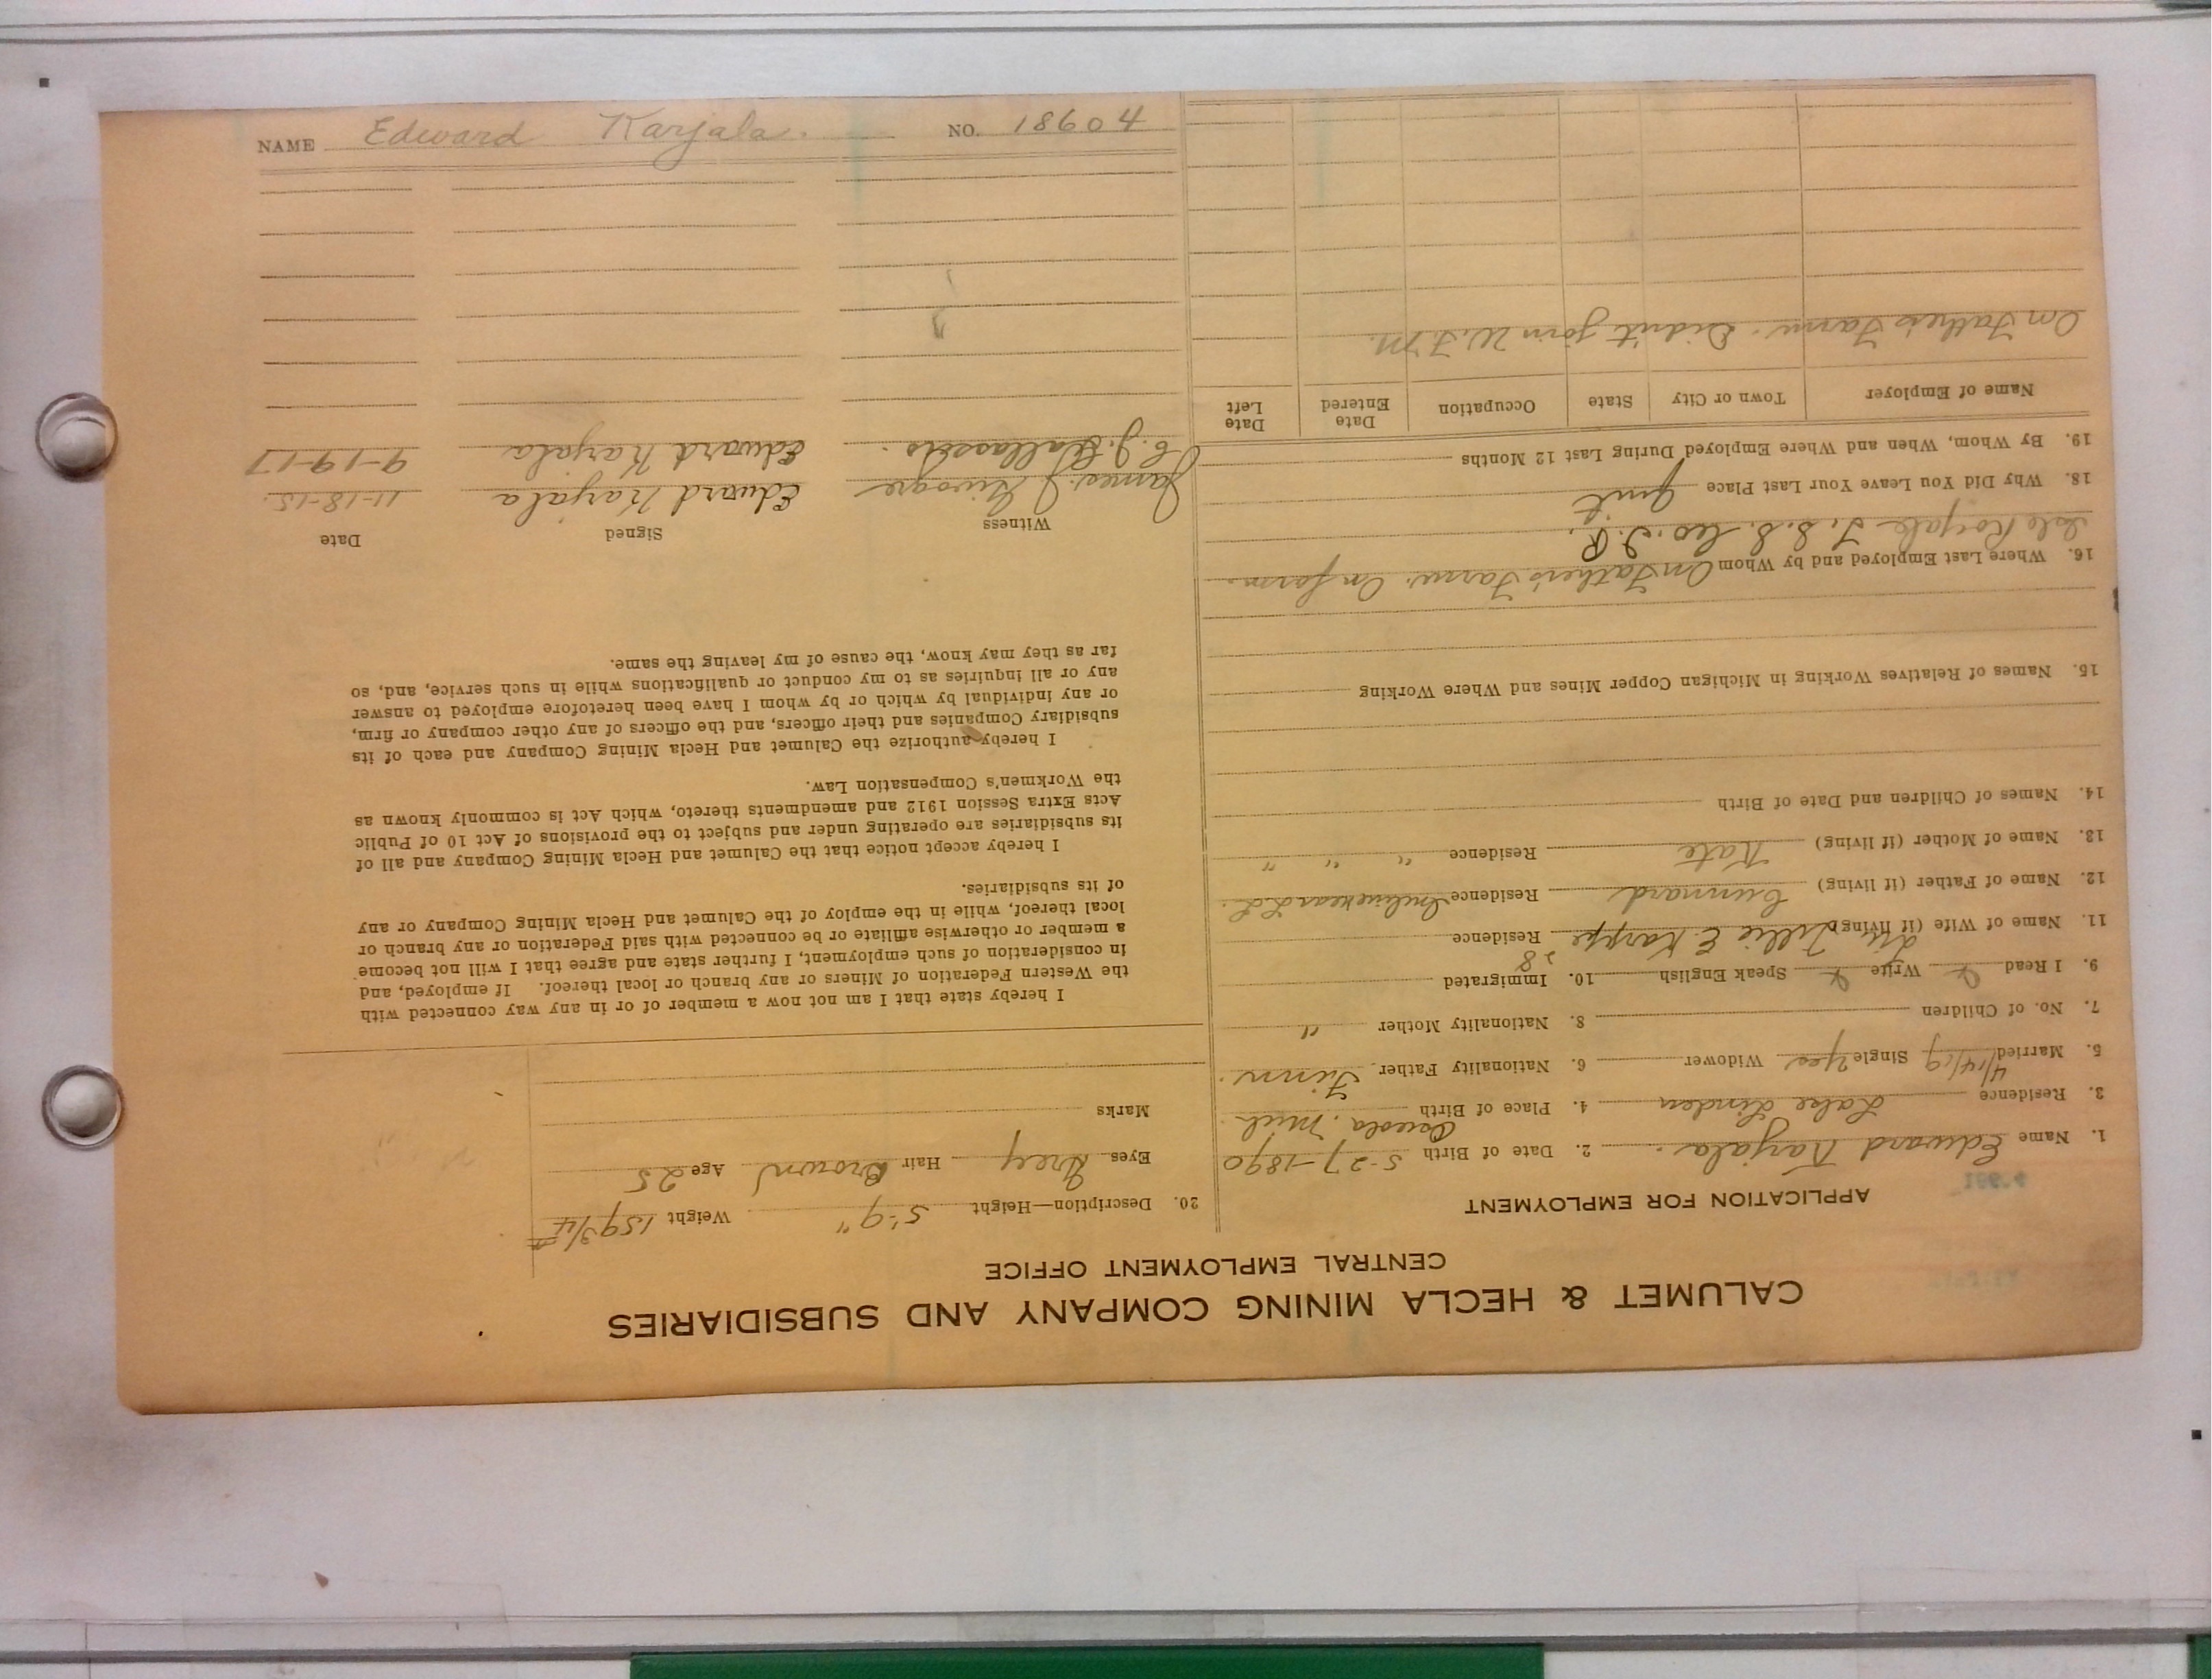 NAME Edward Karjala. NO. 18604
CALUMET & HECLA MINING COMPANY AND SUBSIDIARIES
CENTRAL EMPLOYMENT OFFICE
APPLICATION FOR EMPLOYMENT
1. Name Edward Karjala. 2. Date of Birth 5-27-1890
3. Residence Lake Linden 4. Place of Birth Osceola, Mich.
5. Married 4/14/19 Single Yes Widower 6. Nationality Father Finn.
7. No. of Children 8. Nationality Mother "
9. I Read Write Speak English 10. Immigrated
11. Name of Wife (if living) Tillie E. Karppe Residence
12. Name of Father (if living) Residence L.L.
13. Name of Mother (if living) Kate Residence " " "
14. Names of Children and Date of Birth
15. Names of Relatives Working in Michigan Copper Mines and Where Working
16. Where Last Employed and by Whom On Father's Farm. On farm.
Isle Royale
18. Why Did You Leave Your Last Place Quit
19. By Whom, When and Where Employed During Last 12 Months
Name of Employer Town or City State Occupation Date Entered Date Left
On Father's Farm. Didn't join W.F.M.
20. Description—Height 5'-9" Weight 159 3/4#
Eyes Grey Hair Brown Age 25
Marks
I hereby state that I am not now a member of or in any way connected with
the Western Federation of Miners or any branch or local thereof. If employed, and
in consideration of such employment, I further state and agree that I will not become
a member or otherwise affiliate or be connected with said Federation or any branch or
local thereof, while in the employ of the Calumet and Hecla Mining Company or any
of its subsidiaries.
I hereby accept notice that the Calumet and Hecla Mining Company and all of
its subsidiaries are operating under and subject to the provisions of Act 10 of Public
Acts Extra Session 1912 and amendments thereto, which Act is commonly known as
the Workmen's Compensation Law.
I hereby authorize the Calumet and Hecla Mining Company and each of its
subsidiary Companies and their officers, and the officers of any other company or firm,
or any individual by which or by whom I have been heretofore employed to answer
any or all inquiries as to my conduct or qualifications while in such service, and, so
far as they may know, the cause of my leaving the same.
Witness Signed Date
James J. Edward Karjala 11-18-15.
Edward Karjala 9-19-17